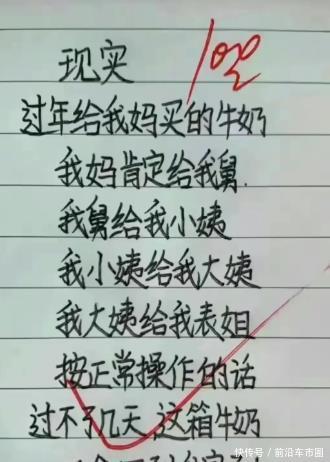 现实
100
过年给我妈买的牛奶
我妈肯定给我舅.
我舅给我小姨
我小姨给我大姨
我大姨给我表姐
按正常操作的话
过不了几天 这箱牛奶
快传号 / 前沿车市圈